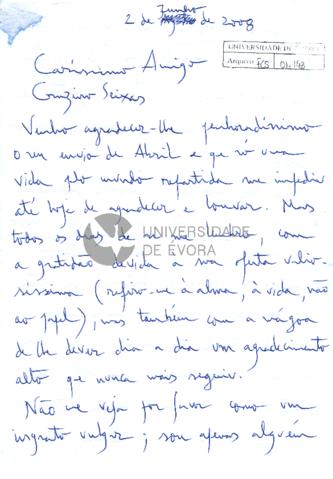 Junho
2 de Agosto de 2008
UNIVERSIDADE DE ÉVORA
Arquivo FCS 01.148
Caríssimo Amigo
Cruzeiro Seixas
Venho agradecer-lhe penhoradíssimo
o seu envio de Abril e que só uma
vida plo mundo repartida me impediu
até hoje de agradecer e louvar. Mas
todos os dias de me lembro, com
a gratidão devida a sua oferta valio-
síssima (refiro-me à alma, à vida, não
ao papel), mas também com a mágoa
de lhe dever dia a dia um agradecimento
alto que nunca mais seguir.
Não me veja por favor como um
ingrato vulgar; sou apenas alguém
UNIVERSIDADE
DE ÉVORA